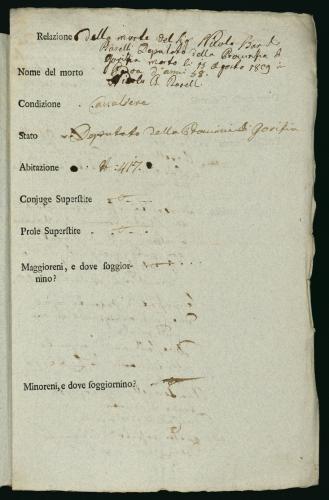 Relazione della morte del Sigr Nicolo Bar. d
Roselli Deputato della Provincia di
Gorizia morto li 15 Agosto 1809 in
d'anni 58.
Nome del morto Nicolo
Condizione Cavaliere
Stato Deputato della Provincia di Gorizia
Abitazione N: 417.
Conjuge Superſtite
Prole Superſtite
Maggioreni, e dove ſoggior-
nino?
Minoreni, e dove ſoggiornino?